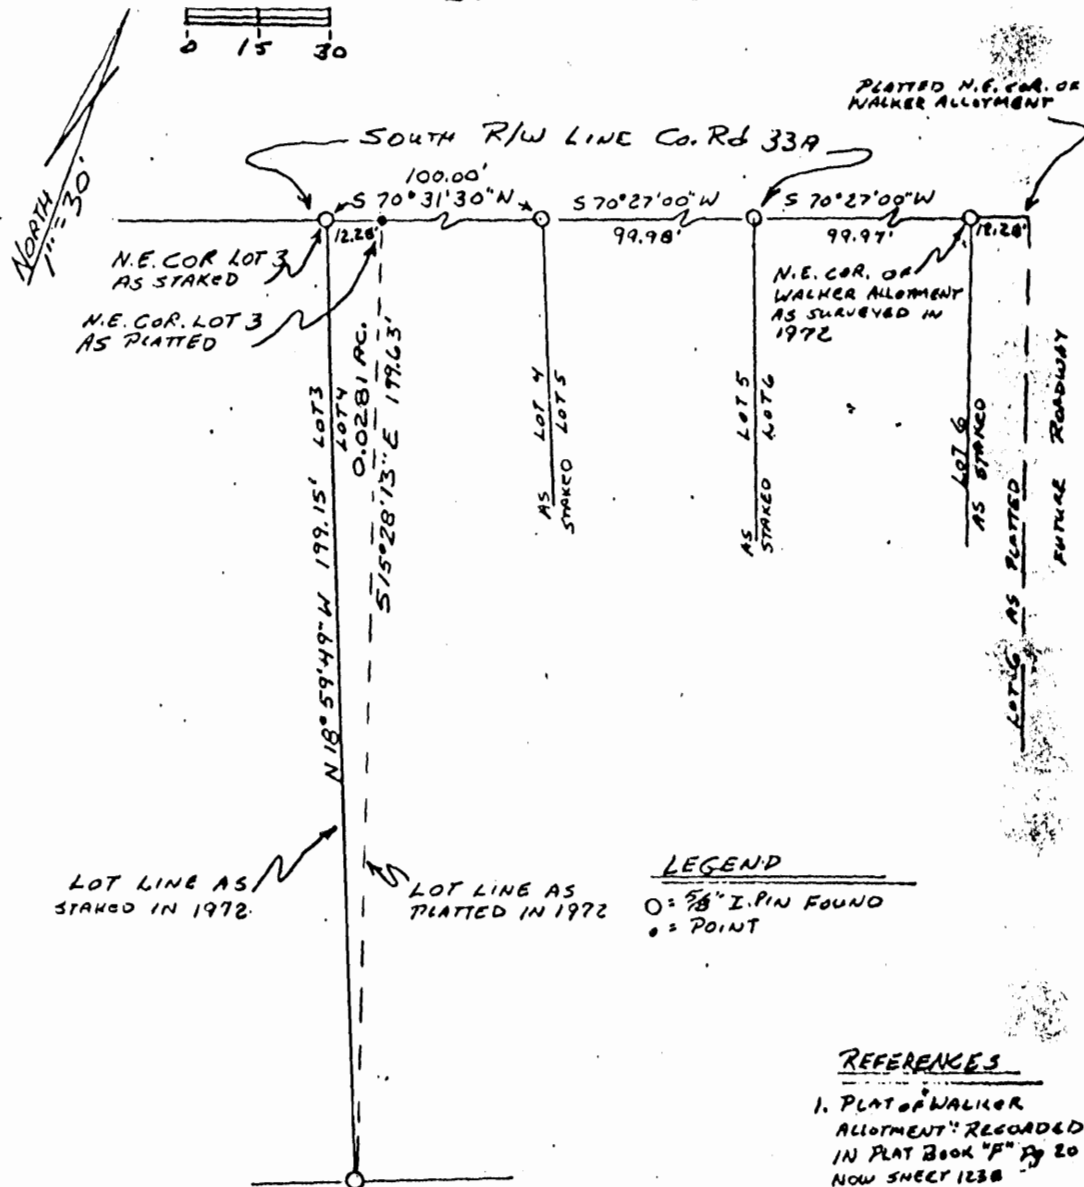 0 15 30
NORTH
1"=30'
PLATTED N.E. COR. OF
WALKER ALLOTMENT
SOUTH R/W LINE Co. Rd 33A
100.00'
S 70°31'30" N
S 70°27'00" W
S 70°27'00" W
12.28'
99.98'
99.97'
12.28'
N.E. COR LOT 3
AS STAKED
N.E. COR. LOT 3
AS PLATTED
N.E. COR. OF
WALKER ALLOTMENT
AS SURVEYED IN
1972
LOT 3
LOT 4
0.0281 AC.
N 18°59'49" W 199.15'
S 15°28'13" E 199.63'
LOT 4
LOT 5
AS
STAKED
LOT 5
LOT 6
AS
STAKED
LOT 6
AS STAKED
LOT 6 AS PLATTED
FUTURE ROADWAY
LOT LINE AS
STAKED IN 1972
LOT LINE AS
PLATTED IN 1972
LEGEND
O = 5/8" I. PIN FOUND
• = POINT
REFERENCES
1. PLAT OF "WALKER
ALLOTMENT" RECORDED
IN PLAT BOOK "F" Pg 20
NOW SHEET 123B